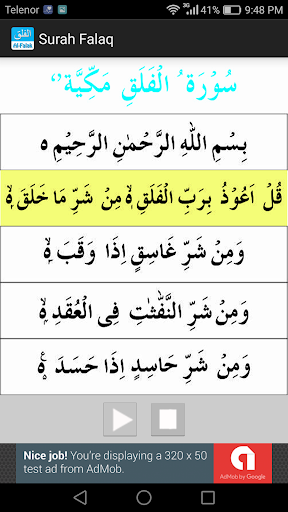 Telenor 9:48 PM
الفلق
Al-Falak
Surah Falaq
سُوْرَةُ الْفَلَقِ مَكِّيَّةٌ
بِسْمِ اللّٰهِ الرَّحْمٰنِ الرَّحِيْمِ ه
قُلْ اَعُوْذُ بِرَبِّ الْفَلَقِ ۙ مِنْ شَرِّ مَا خَلَقَ ۙ
وَمِنْ شَرِّ غَاسِقٍ اِذَا وَقَبَ ۙ
وَمِنْ شَرِّ النَّفّٰثٰتِ فِى الْعُقَدِ ۙ
وَمِنْ شَرِّ حَاسِدٍ اِذَا حَسَدَ
Nice job! You're displaying a 320 x 50
test ad from AdMob.
AdMob by Google